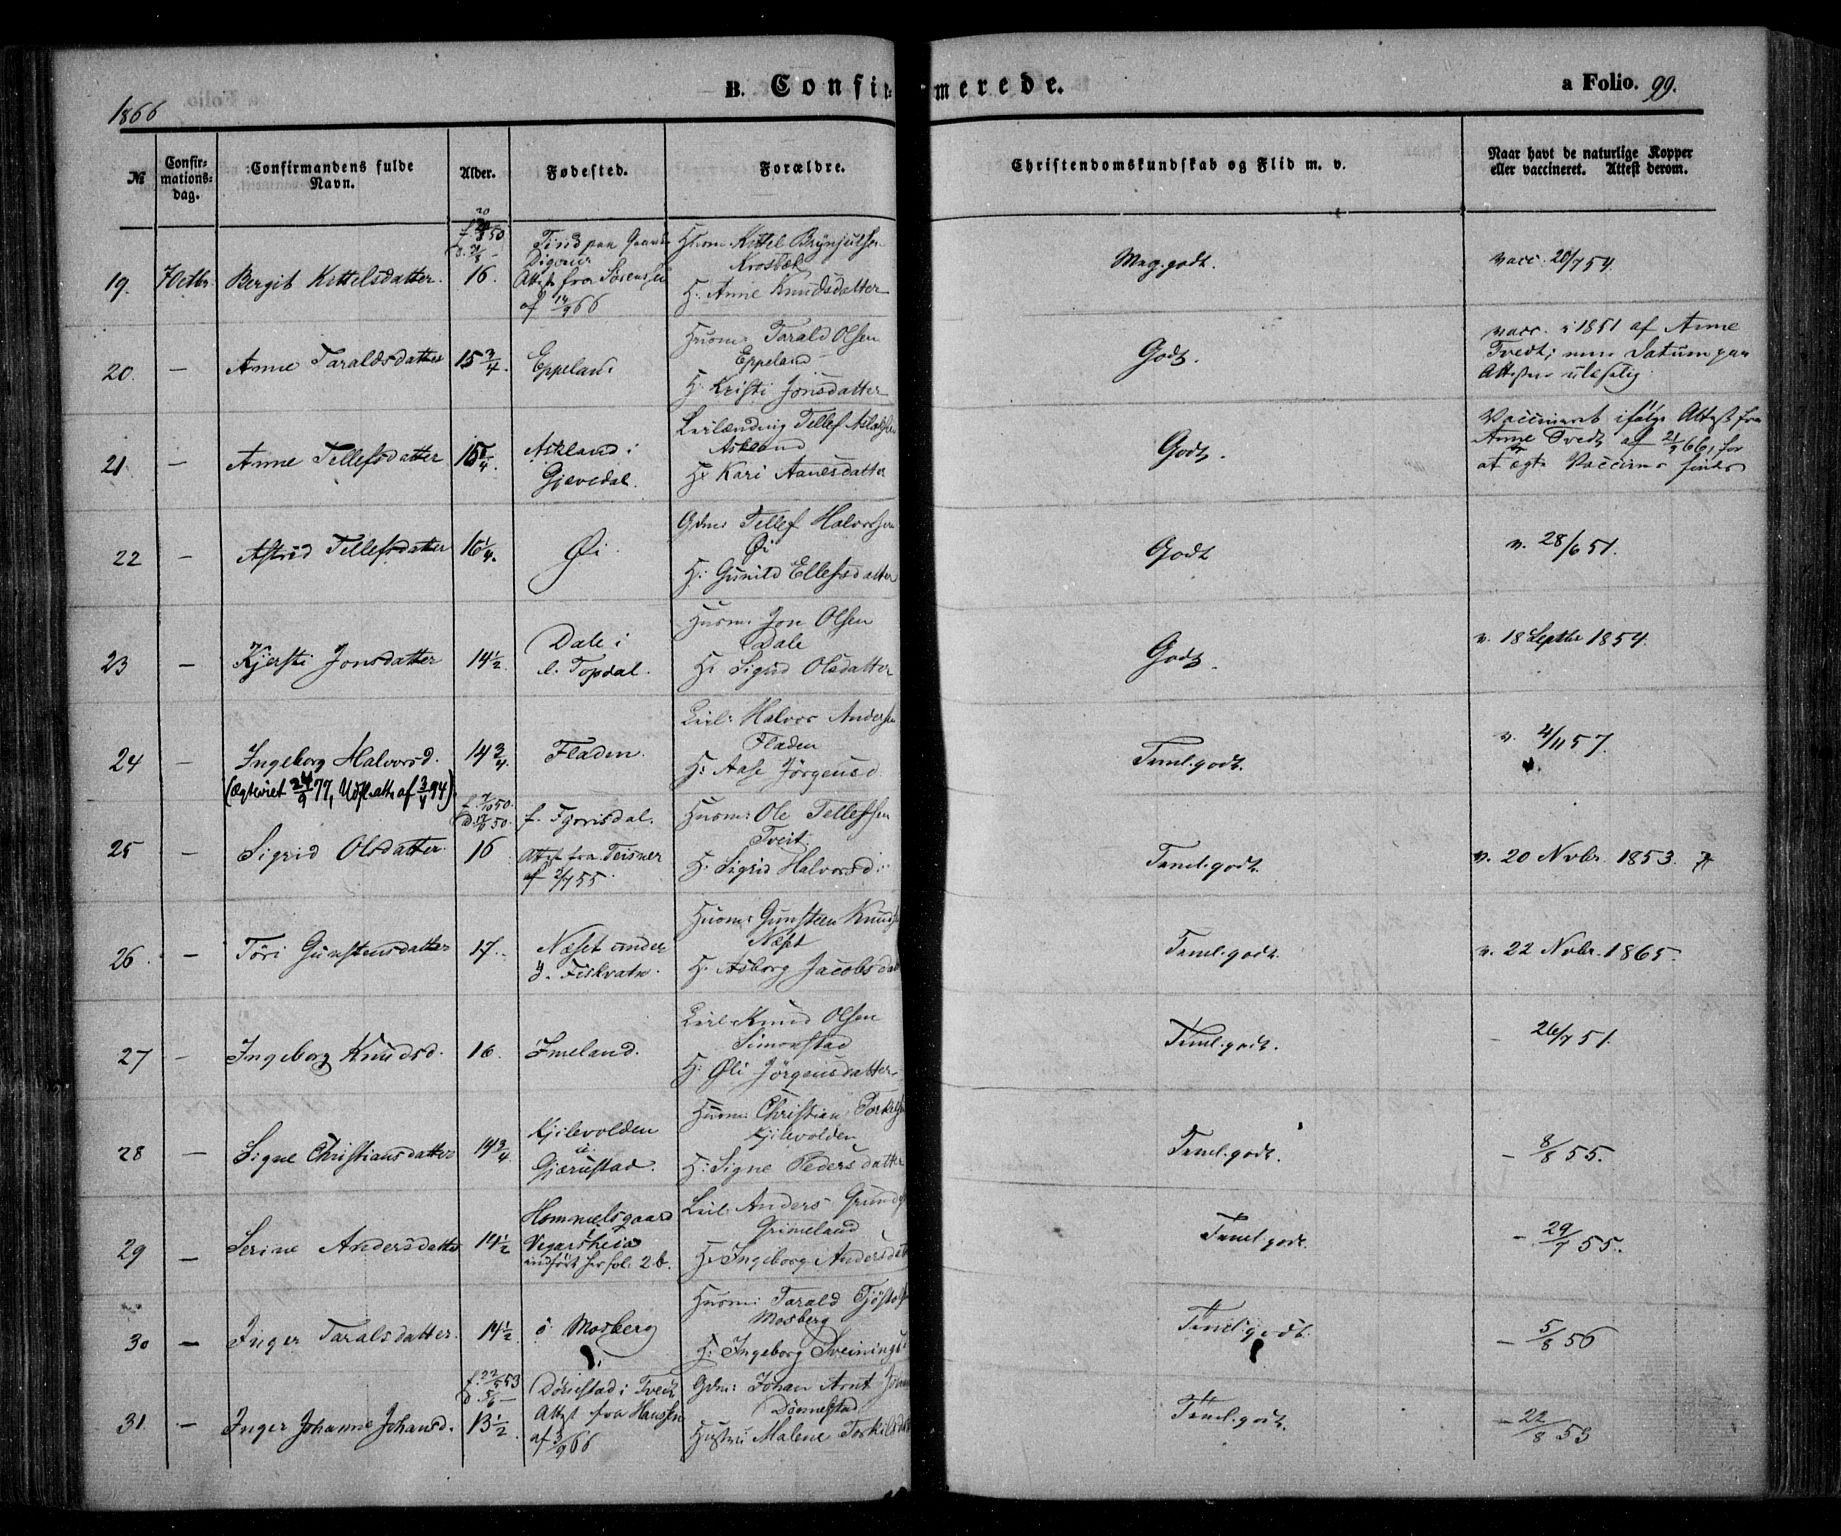 1866
B. Confirmerede.
a Folio. 99.
№
Confirmationsdag.
Confirmandens fulde Navn.
Alder.
Fødested.
Forældre.
Christendomskundskab og Flid m. v.
Naar havt de naturlige Kopper eller vaccineret. Attest derom.
19. Bergit Kittelsdatter. 16.
Tind
Attest fra Sørensen
af 14/9 66
Husm: Kittel
H: Anne Knudsdatter
Mag. godt.
vacc. 20/7 54.
20. — Anne Taraldsdatter 15 3/4. Eppeland
Husm: Tarald Olsen
Eppeland
H: Kristi Jonsdatter
Godt.
vacc. i 1851 af Anne
Tvedt; men Datum paa
Attesten ulæselig.
21 — Anne Tellefsdatter 15 1/4.
Askland i
Gjevedal.
Leilænding Tellef Aslaksen
Askland
H: Kari Aanesdatter
Godt.
Vaccineret ifølge Attest fra
Anne Tvedt af 21/9 66, for
at ægte Vaccine findes
22 — Astrid Tellefsdatter 16 1/4. Øi.
Gdm: Tellef Halvorsen
Øi
H: Gunild Ellefsdatter
Godt
v. 28/6 51.
23 — Kjersti Jonsdatter 14 1/2.
Dale i
ø. Topdal.
Husm: Jon Olsen
Dale
H: Sigrid Olsdatter
Godt.
v. 18 Septbr 1854.
24 — Ingeborg Halvorsd. 14 3/4 Fladen.
(Ægteviet 24/9 77, Udfl. att. af 3/4 94).
Leil: Halvor Andersen
Fladen
H: Aase Jørgensd
Temel. godt.
v. 4/11 57
25 — Sigrid Olsdatter. 16
f. Fyrrisdal.
Attest fra Teisner
af 2/7 55.
Husm: Ole Tellefsen
Tveit
H. Sigrid Halvorsd:
Temel. godt.
v. 20 Novbr. 1853.
26. — Tøri Gunstensdatter 17.
Næset under
y. Fiskvatn.
Husm: Gunsteen Knuds
Næset
H. Asborg Jacobsdat
Temel. godt.
v. 22 Novbr. 1865.
27 — Ingeborg Knudsd. 16. Imeland.
Leil. Knud Olsen
Simonstad
H: Øli Jørgensdatter
Temel. godt.
— 26/7 51.
28 — Signe Christiansdatter 14 3/4
Kjilevolden
i
Gjerrestad.
Husm: Christian Torkilsen
Kjilevolden
H: Signe Pedersdatter
Temel. godt.
— 8/8 55.
29 — Serine Andersdatter 14 1/2
Hommelsgaard
Vegarsheia
indført her fol. 2 b.
Leil: Anders
Grimeland
H: Ingeborg Andersdat
Temel. godt.
— 29/7 55.
30 — Inger Taralsdatter. 14 1/2 ø. Mosberg
Husm: Tarald Tjøstols
Mosberg
H: Ingeborg Sveinings
Temel. godt.
— 5/8 56
31. — Inger Johanne Johansd. 13 1/2.
Dønnestad i Tvedt
Attest fra Hansen
af 3/9 66
Gdm: Johan Arnt
Dønnestad
Hustru Malene Torkilsdat
Temel. godt.
— 22/8 53